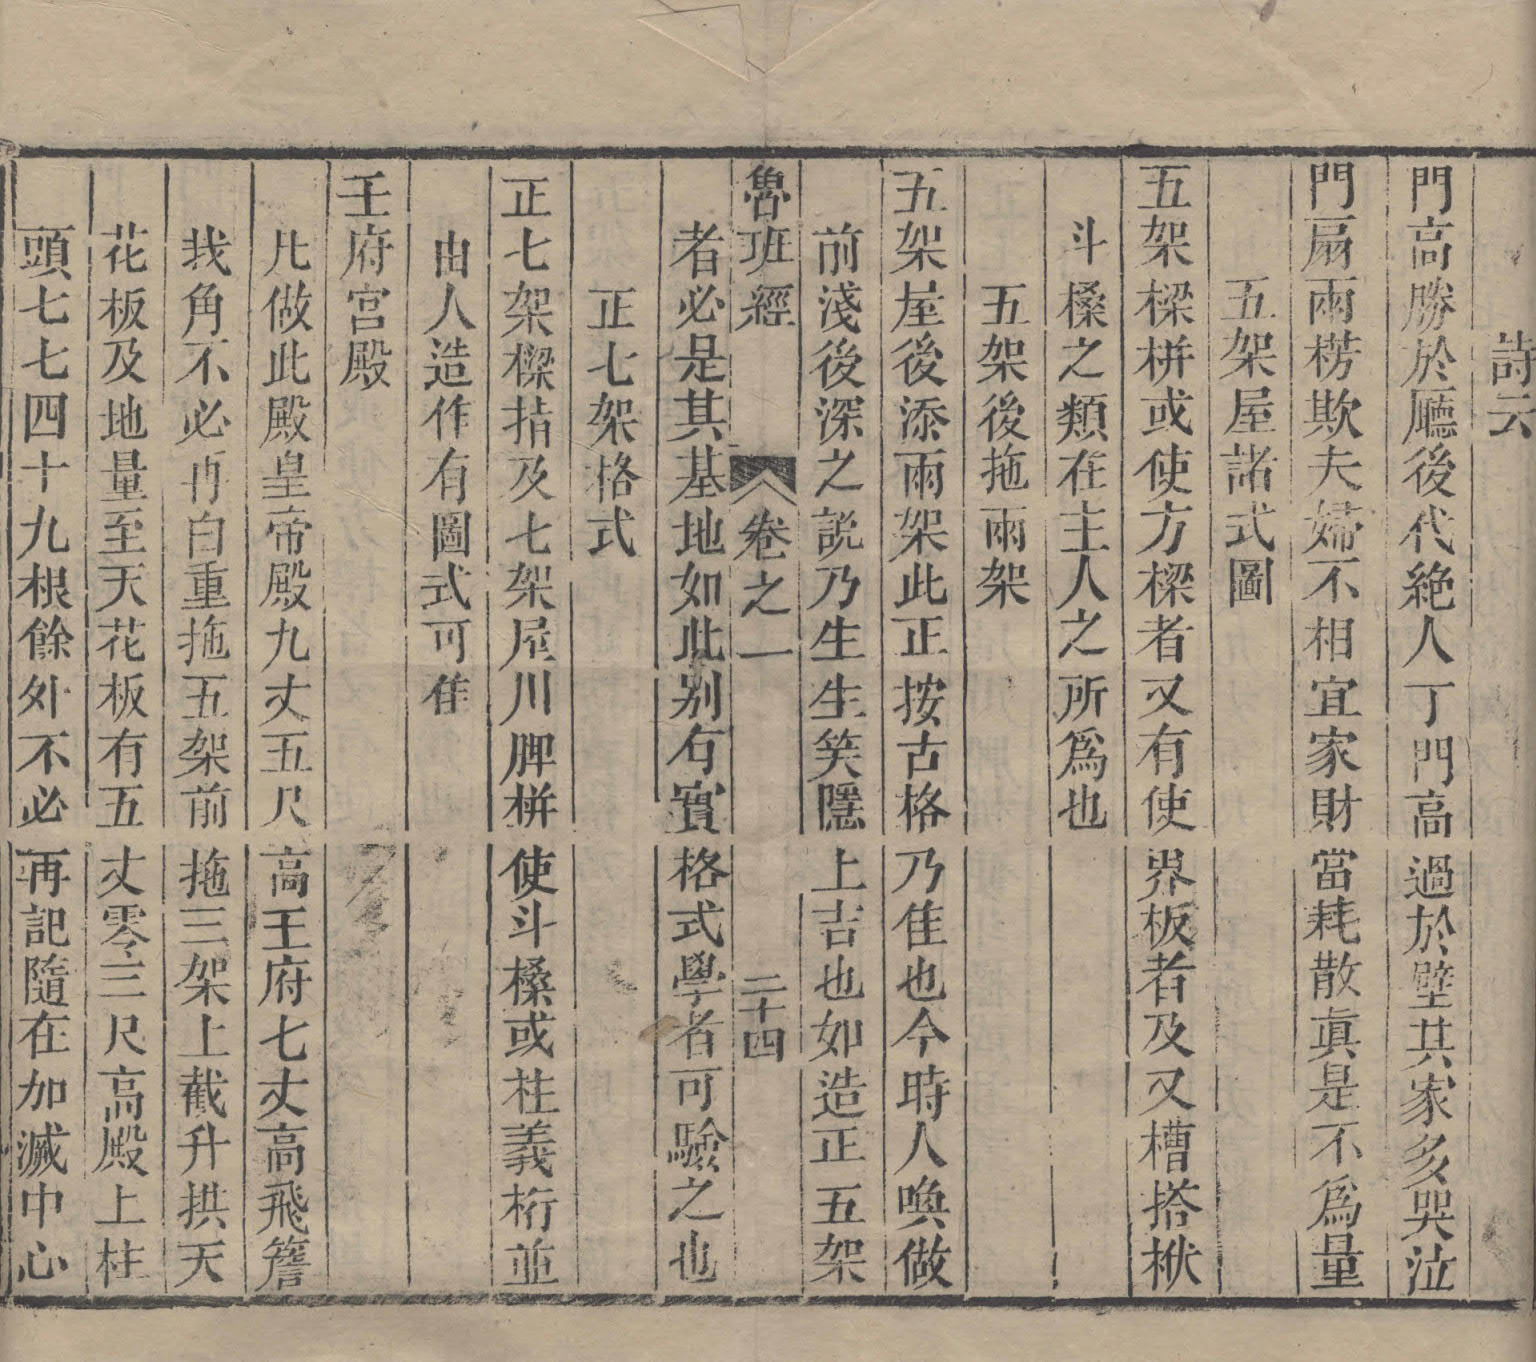 詩云
門高勝於廳後代絶人丁門高過於壁其家多哭泣
門扇兩楞欺夫婦不相宜家財當耗散眞是不爲量
五架屋諸式圖
五架樑栟或使方樑者又有使界板者及又槽搭栿
斗磉之類在主人之所爲也
五架後拖兩架
五架屋後添兩架此正按古格乃佳也今時人喚做
前淺後深之説乃生生笑隱上吉也如造正五架
魯班經 卷之一 二十四
者必是其基地如此别有實格式學者可驗之也
正七架格式
正七架樑指及七架屋川牌栟使斗磉或柱義桁並
由人造作有圖式可佳
王府宫殿
凡做此殿皇帝殿九丈五尺高王府七丈高飛簷
找角不必再白重拖五架前拖三架上截升拱天
花板及地量至天花板有五丈零三尺高殿上柱
頭七七四十九根餘外不必再記隨在加減中心